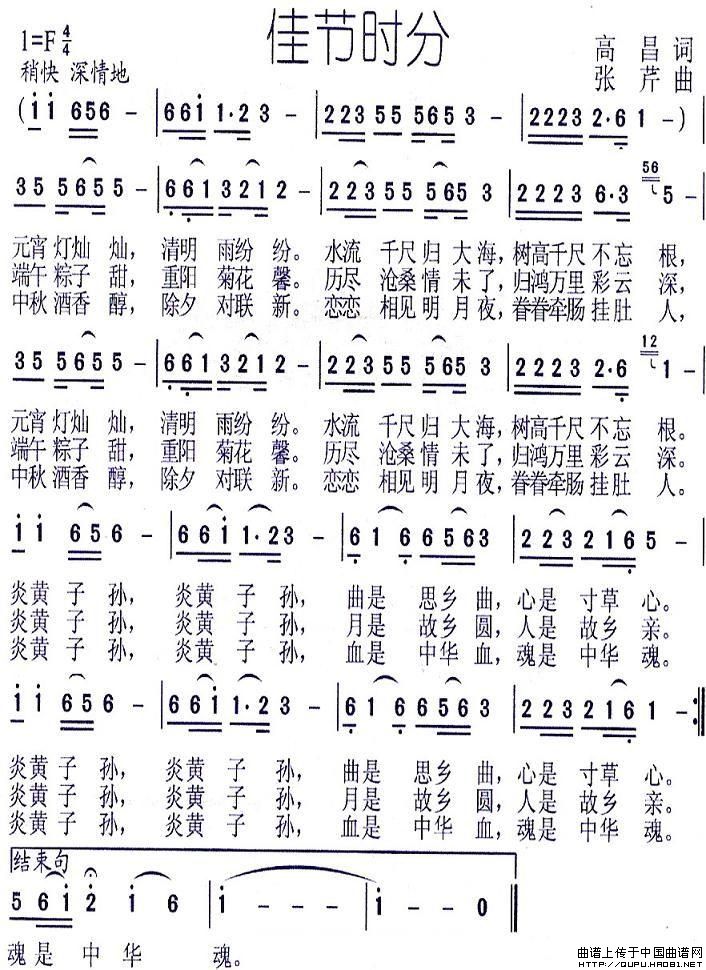 佳节时分
1=F 4/4
高昌词
稍快 深情地
张芹曲
(i i 6 5 6 - | 6 6 i i·2 3 - | 2 2 3 5 5 5 6 5 3 - | 2 2 2 3 2·6 1 - )
3 5 5 6 5 5 - | 6 6 1 3 2 1 2 - | 2 2 3 5 5 5 6 5 3 | 2 2 2 3 6·3 56 5 - |
元宵灯灿灿，清明雨纷纷。水流千尺归大海，树高千尺不忘根，
端午粽子甜，重阳菊花馨。历尽沧桑情未了，归鸿万里彩云深，
中秋酒香醇，除夕对联新。恋恋相见明月夜，眷眷牵肠挂肚人，
3 5 5 6 5 5 - | 6 6 1 3 2 1 2 - | 2 2 3 5 5 5 6 5 3 | 2 2 2 3 2·6 12 1 - |
元宵灯灿灿，清明雨纷纷。水流千尺归大海，树高千尺不忘根。
端午粽子甜，重阳菊花馨。历尽沧桑情未了，归鸿万里彩云深。
中秋酒香醇，除夕对联新。恋恋相见明月夜，眷眷牵肠挂肚人。
i i 6 5 6 - | 6 6 i i·2 3 - | 6 1 6 5 6 3 | 2 2 3 2 1 6 5 - |
炎黄子孙，炎黄子孙，曲是思乡曲，心是寸草心。
炎黄子孙，炎黄子孙，月是故乡圆，人是故乡亲。
炎黄子孙，炎黄子孙，血是中华血，魂是中华魂。
i i 6 5 6 - | 6 6 i i·2 3 - | 6 1 6 6 5 6 3 | 2 2 3 2 1 6 1 - :||
炎黄子孙，炎黄子孙，曲是思乡曲，心是寸草心。
炎黄子孙，炎黄子孙，月是故乡圆，人是故乡亲。
炎黄子孙，炎黄子孙，血是中华血，魂是中华魂。
结束句
5 6 i 2 i 6 | i - - - | i - - 0 ||
魂是中华魂。
曲谱上传于中国曲谱网
http://QUPU.HAO81.NET